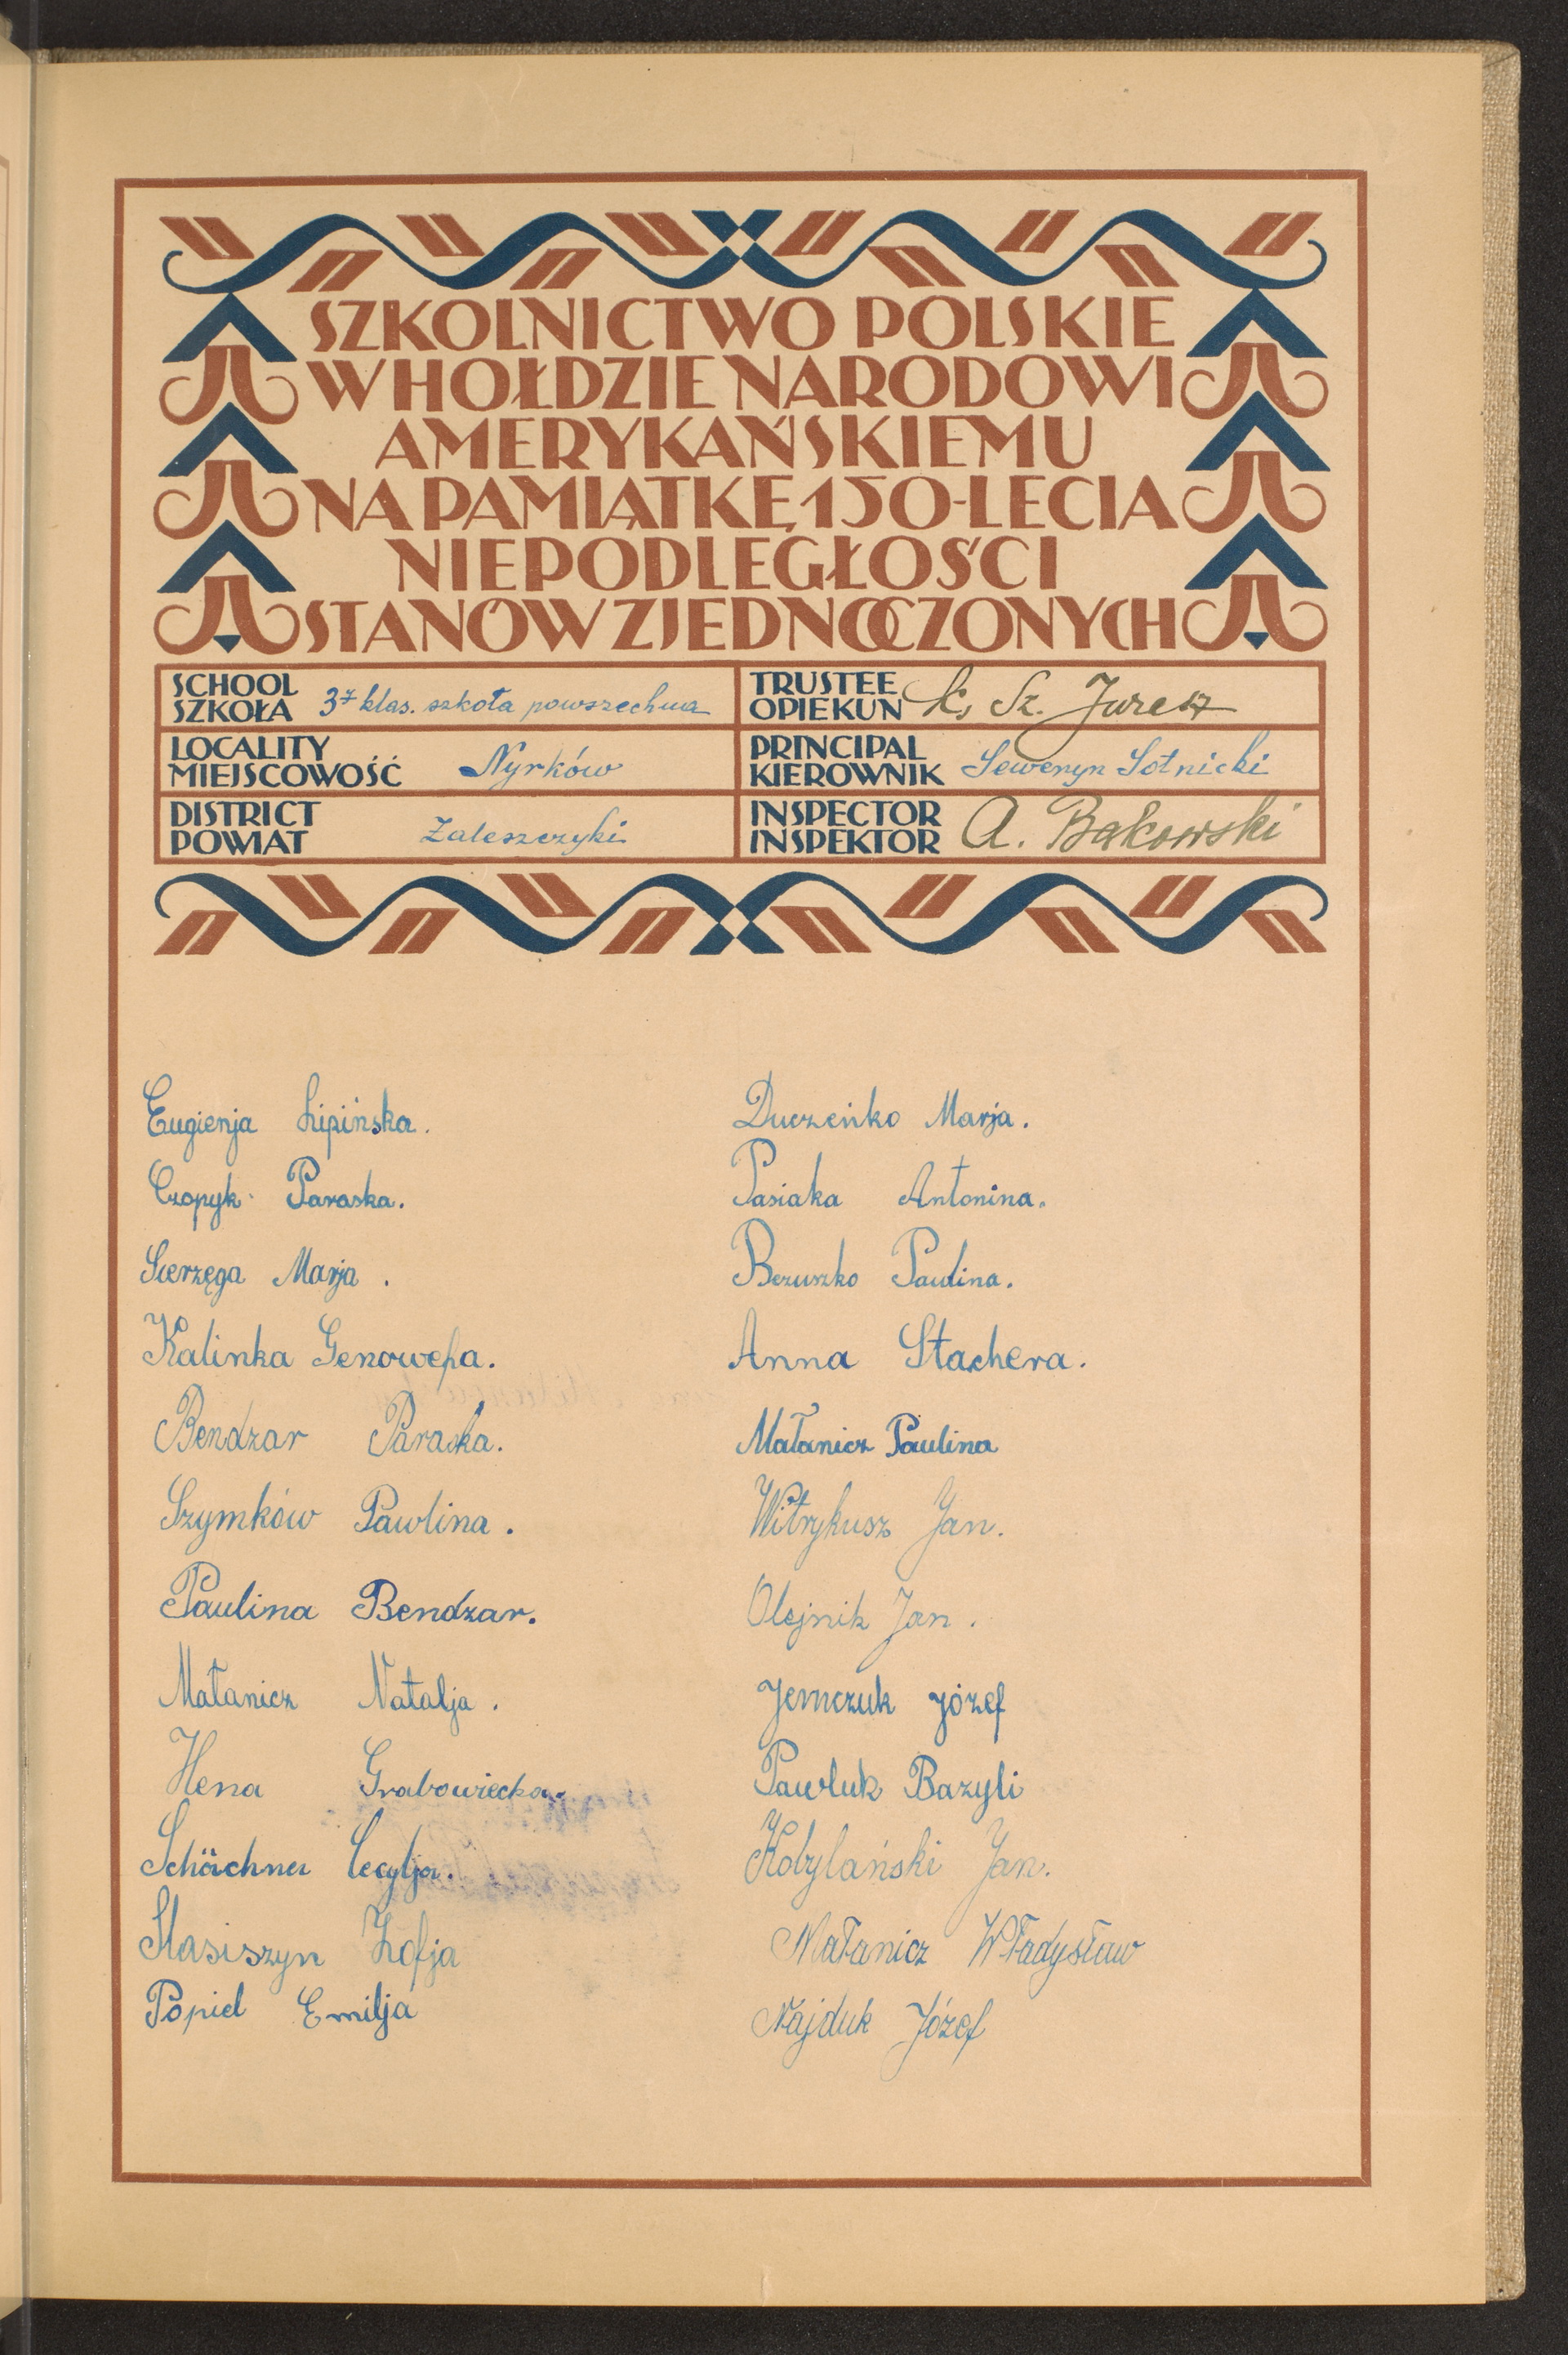 SZKOLNICTWO POLSKIE
W HOŁDZIE NARODOWI
AMERYKAŃSKIEMU
NA PAMIĄTKĘ 150-LECIA
NIEPODLEGŁOŚCI
STANÓW ZJEDNOCZONYCH
SCHOOL
SZKOŁA 3 klas. szkoła powszechna
TRUSTEE
OPIEKUN Sz.
LOCALITY
MIEJSCOWOŚĆ Nyrków
PRINCIPAL
KIEROWNIK Seweryn Sotnicki
DISTRICT
POWIAT Zaleszczyki
INSPECTOR
INSPEKTOR A. Bąkowski
Eugienja Lipińska.
Czopyk Paraska.
Scerzęga Marja.
Kalinka Genowefa.
Bendzar Paraska.
Szymków Pawlina.
Paulina Bendzar.
Małanicz Natalja.
Hena Grabowiecka.
Schächner Cecylja.
Stasiszyn Zofja
Popiel Emilja
Duczeńko Marja.
Pasiaka Antonina.
Bezuszko Paulina.
Anna Stachera.
Małanicz Paulina
Witrykusz Jan.
Olejnik Jan.
Jemczuk Józef
Pawluk Bazyli
Kobylański Jan.
Małanicz Władysław
Najduk Józef